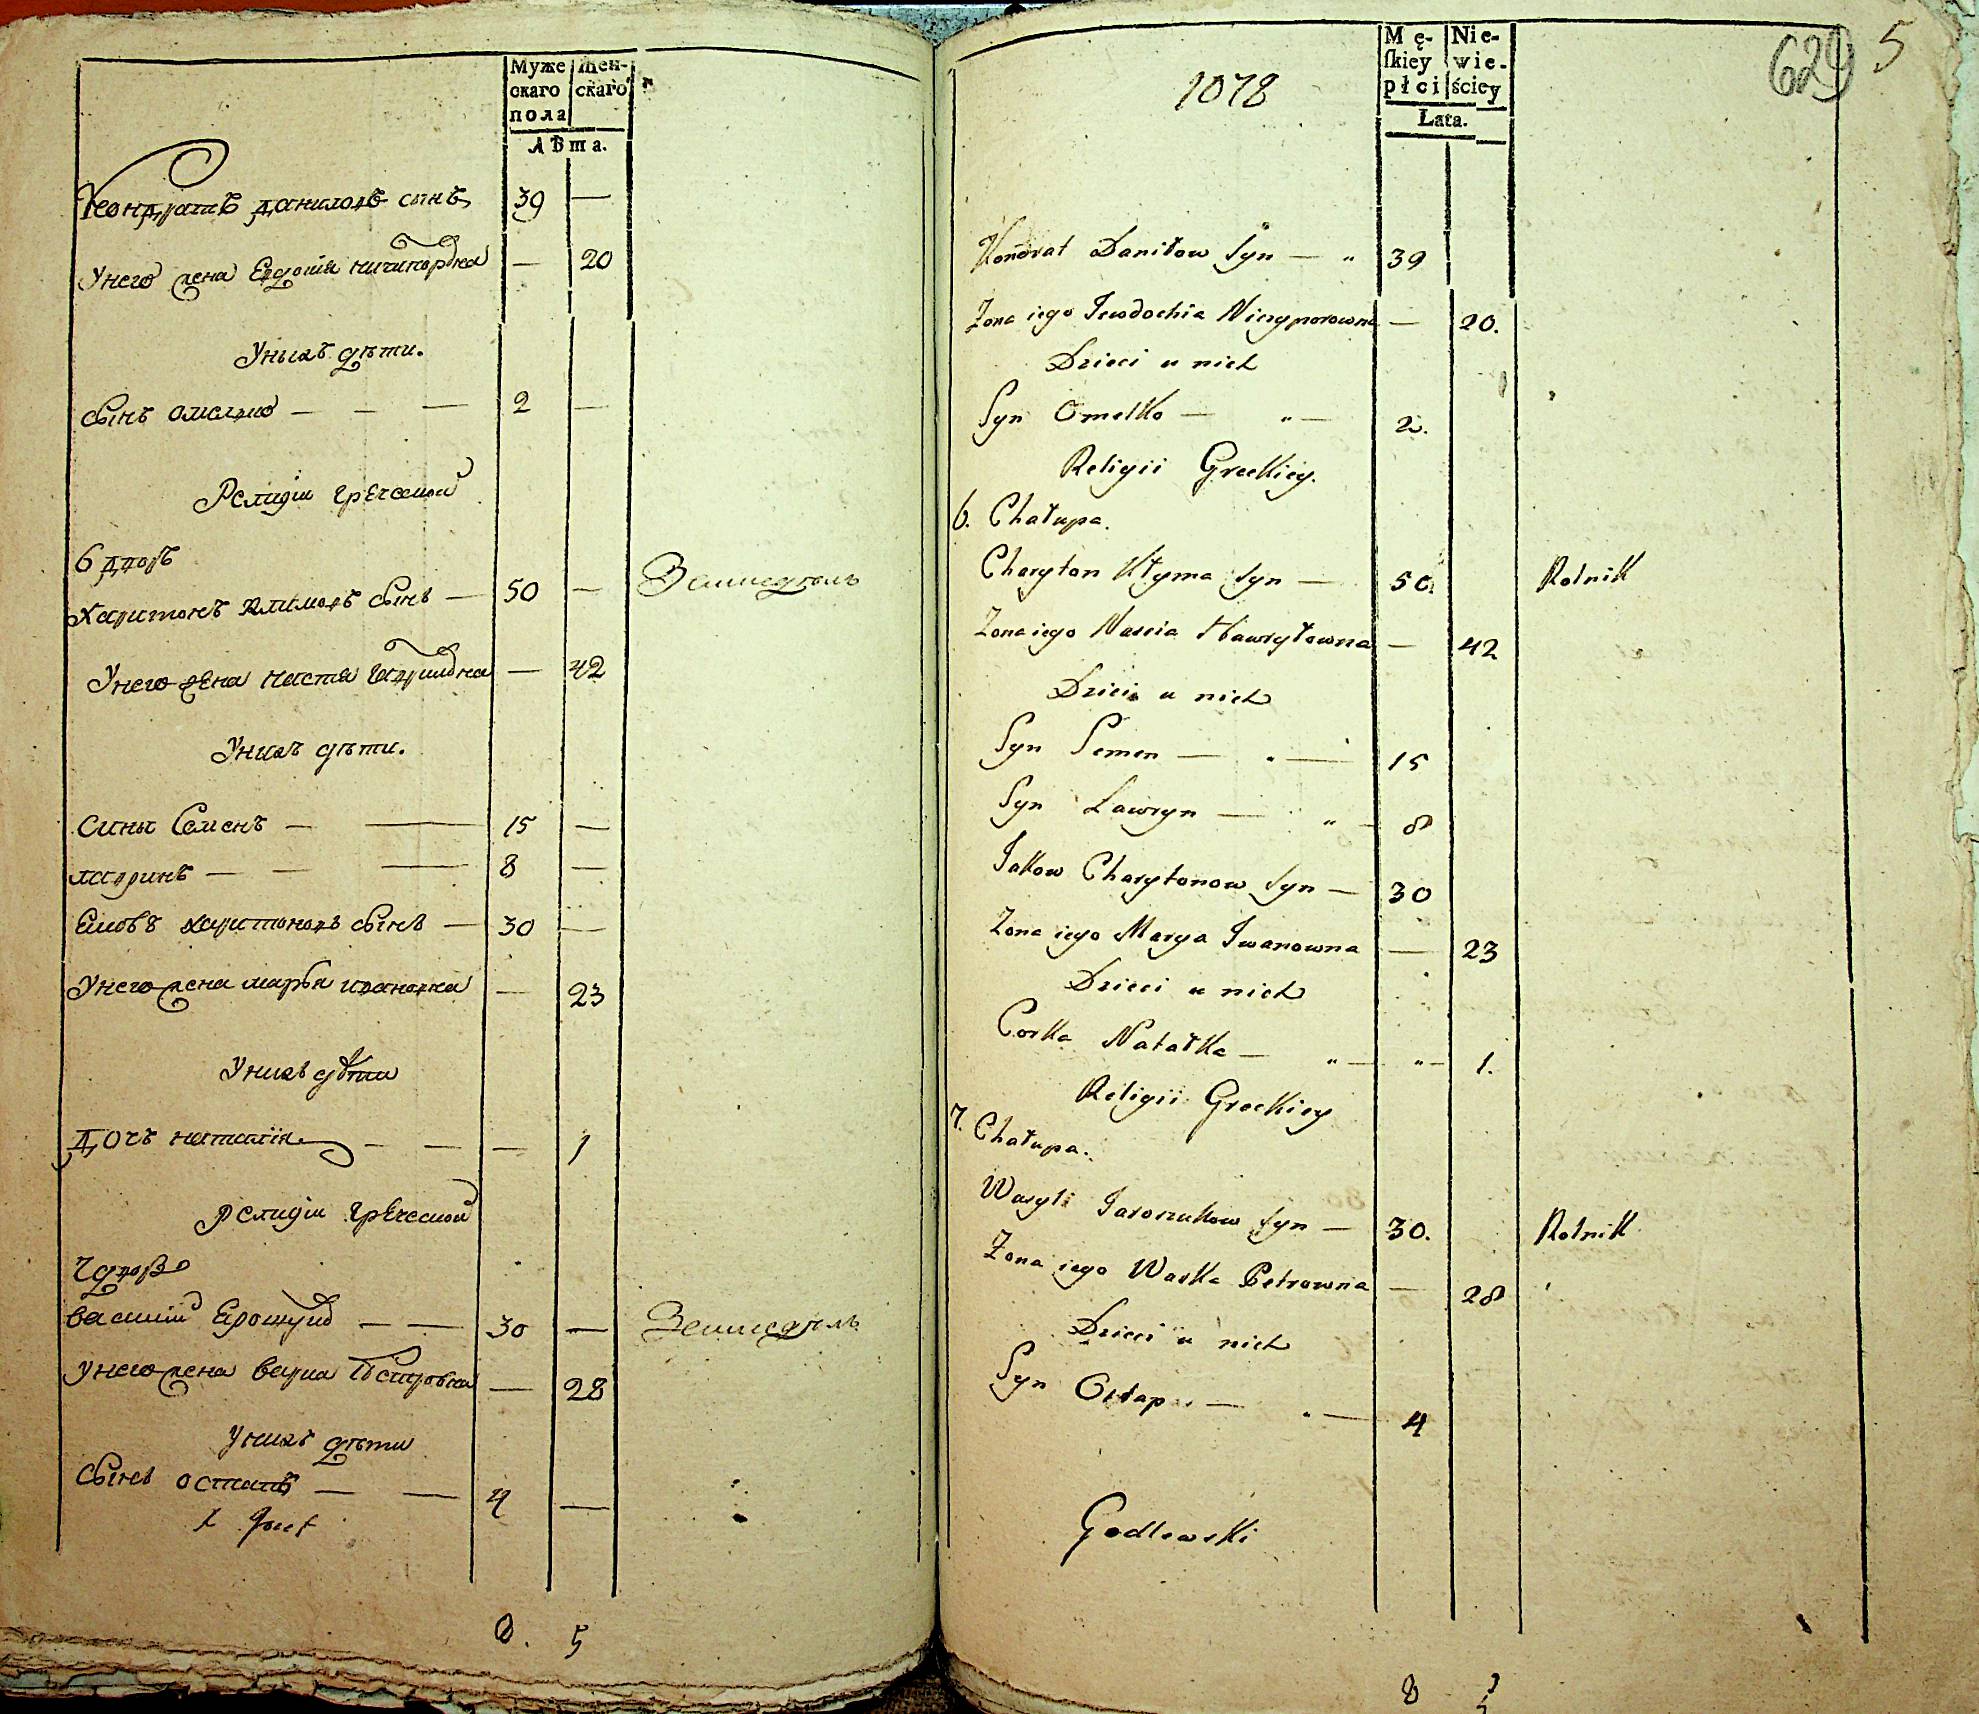 Муже Жен-
скаго скаго
пола
Лѣта.
Кондратъ даниловъ сынъ 39 —
Унего жена Евдокия ничипоровна — 20
Унихъ дѣти.
сынъ омелко — — — 2 —
Религіи греческой
6 дворъ
Харитонъ климовъ сынъ — 50 — Земледѣль
Унего жена настя гавриловна — 42
Унихъ дѣти.
сины Семенъ — — 15 —
лавринъ — — — 8 —
Ековъ харитоновъ сынъ — 30 —
Унего жена марья ивановна — 23
Унихъ дѣти
дочь наталія — — — 1
Религіи греческой
7 дворъ
василій Ярощукъ — — 30 — Земледѣль
унего жена варка Петровна — 28
унихъ дѣти
Сынъ остапъ — — 4 —
8. 5
1078
629 5
Mę- Nie-
skiey wie-
płci ściey
Lata.
Kondrat Daniłow Syn — „ 39
Żona iego Jewdochia Niczyporowna — 20.
Dzieci u nich
Syn Omelko — „ — 2.
Religii Greckiey.
6. Chałupa.
Charyton Kłyma Syn — 50. Rolnik
Żona iego Nascia Hawryłowna — 42
Dzieci u nich
Syn Semen — „ — 15
Syn Lawryn — „ — 8
Jakow Charytonow Syn — 30
Żona iego Marya Iwanowna — 23
Dzieci u nich
Corka Natałka — „ — „ — 1.
Religii Greckiey
7. Chałupa.
Wasyli Jaroszukow Syn — 30. Rolnik
Żona iego Warka Petrowna — 28
Dzieci u nich
Syn Ostap — „ — 4
Godlewski
8 5